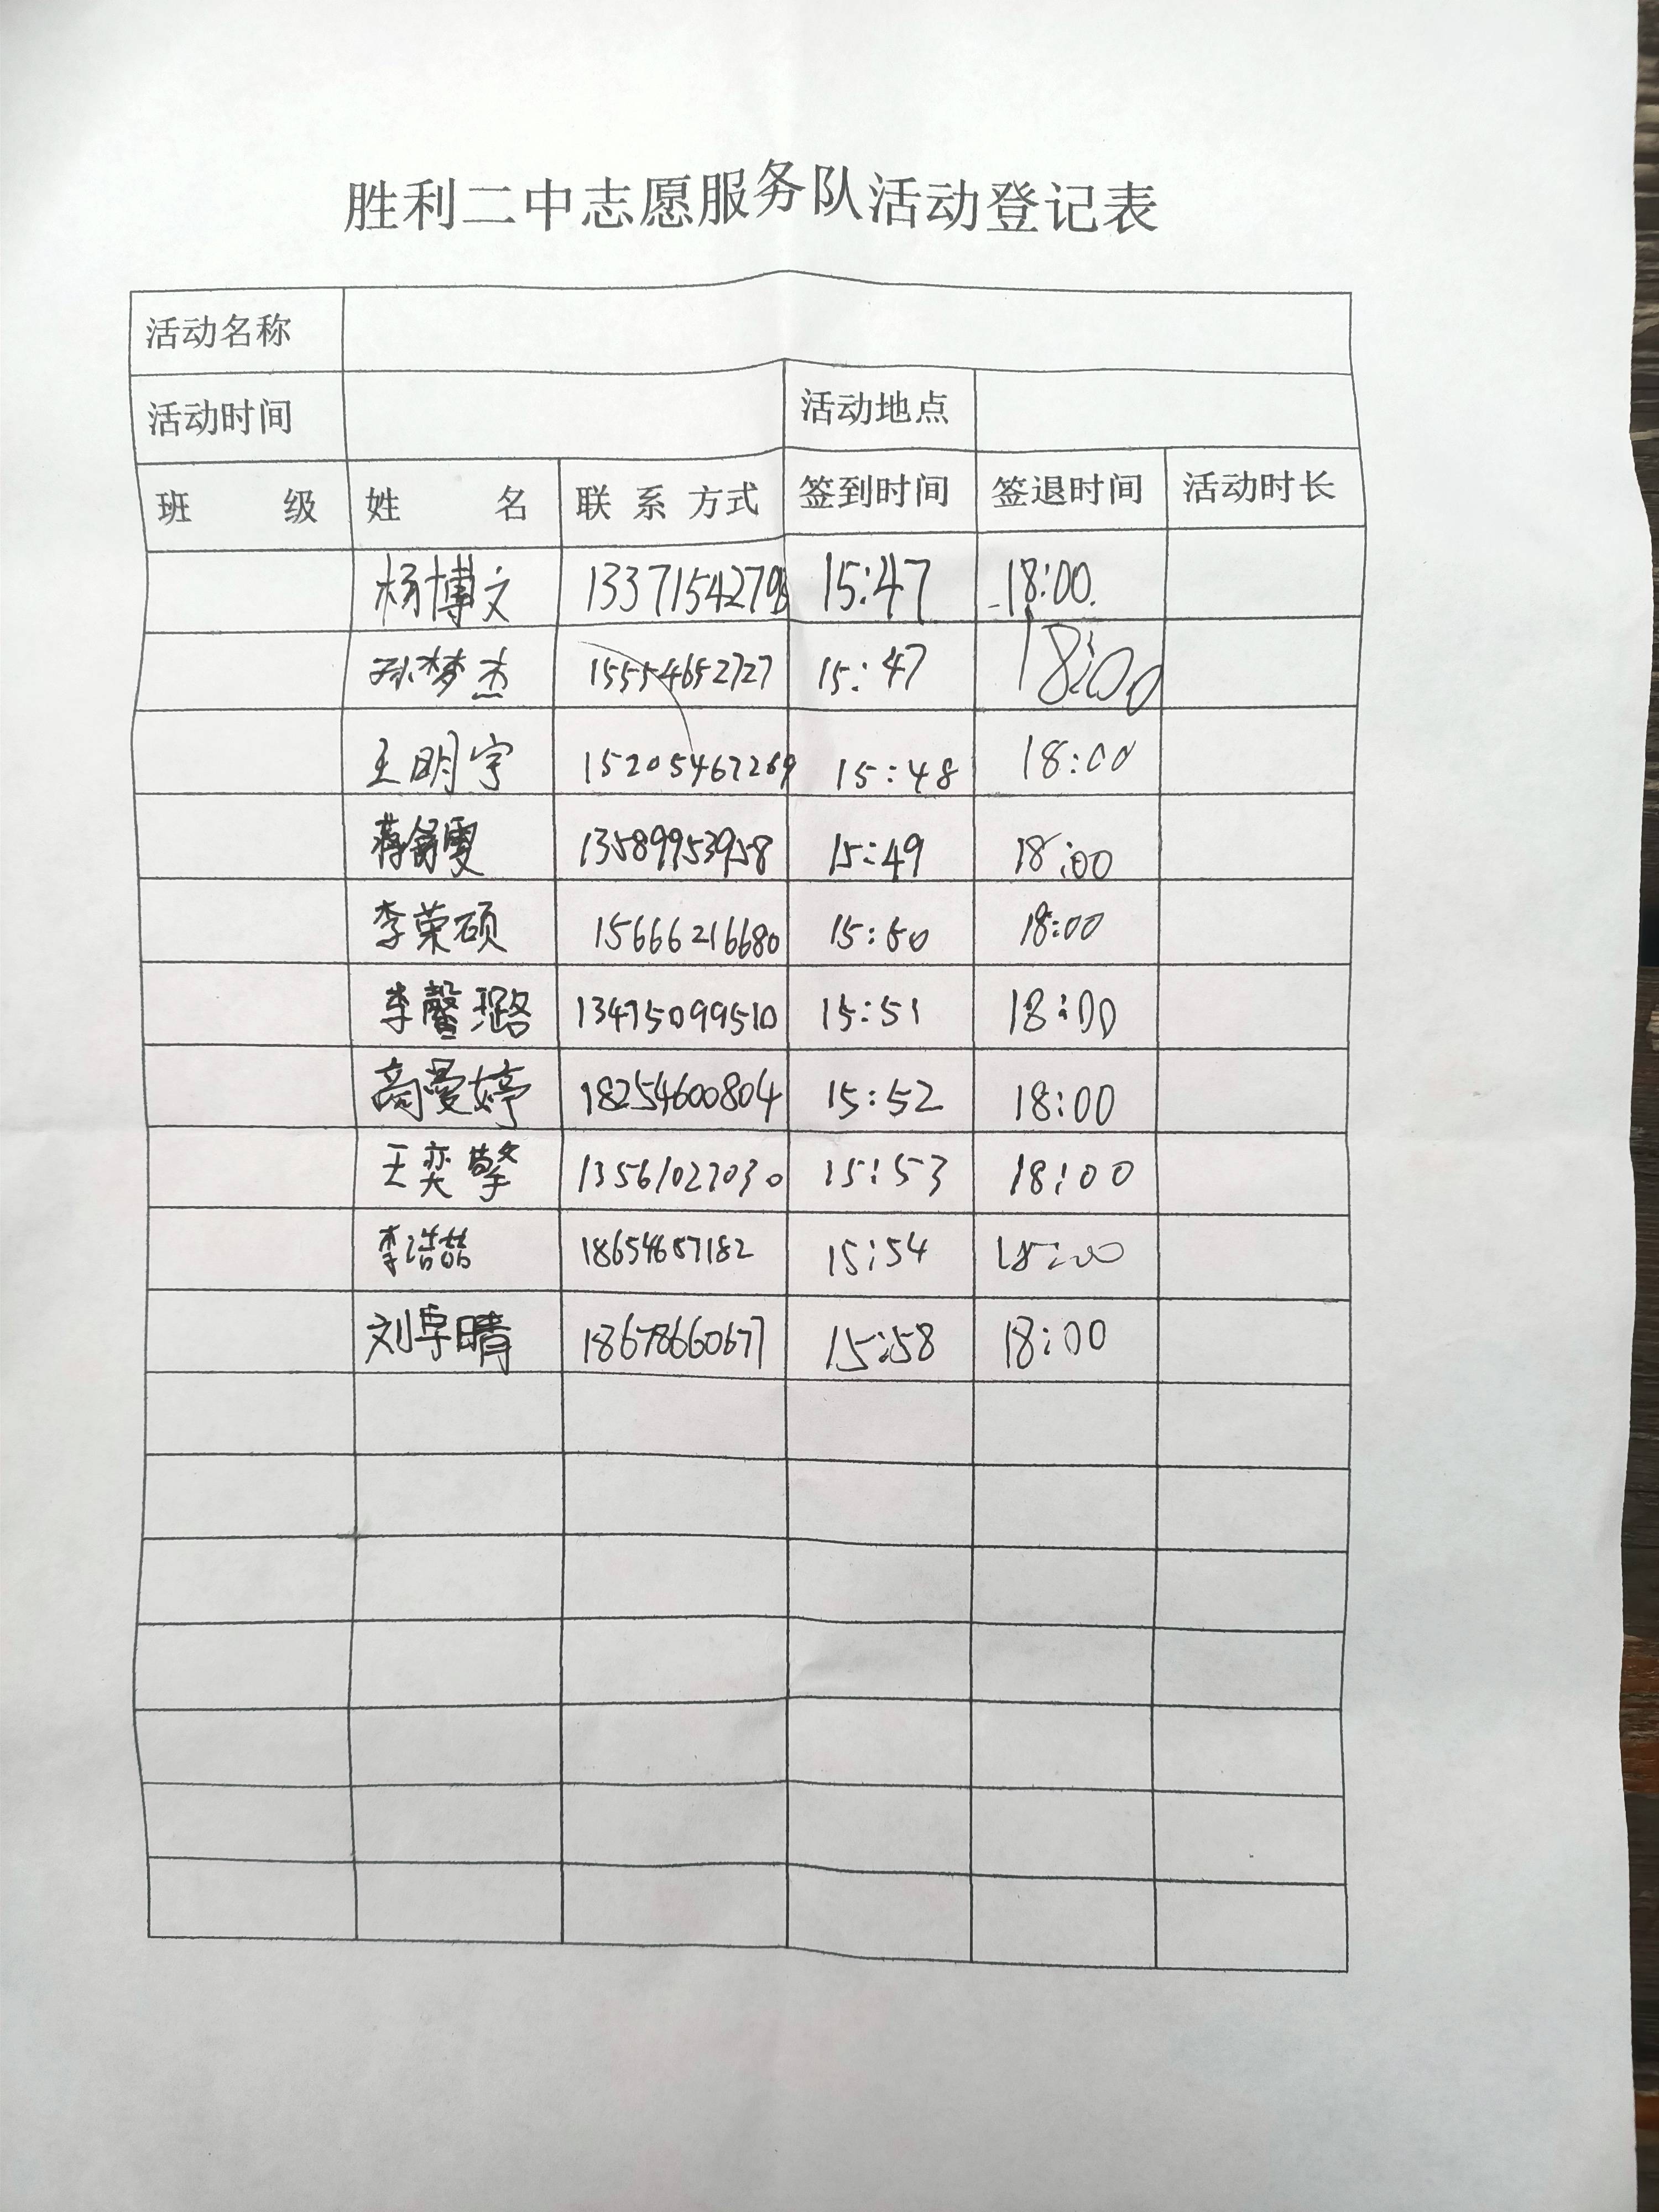 胜利二中志愿服务队活动登记表
活动名称
活动时间 活动地点
班 级 姓 名 联系方式 签到时间 签退时间 活动时长
杨博文 15:47 18:00
孙梦杰 15554652727 15:47 18:00
王明宇 15205467269 15:48 18:00
蒋舒雯 13589953958 15:49 18:00
李荣硕 15666216680 15:50 18:00
李馨璐 13475099510 15:51 18:00
高曼婷 18254600804 15:52 18:00
王奕擎 13561027030 15:53 18:00
李浩喆 18654687182 15:54 18:00
刘卓晴 18678660677 15:58 18:00